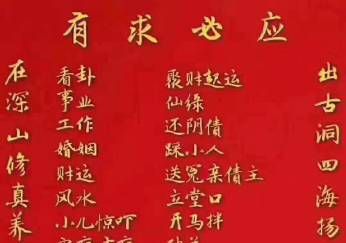 有求必应
在深山修真养
看卦 聚财起运
事业 仙缘
工作 还阴债
婚姻 踩小人
财运 送冤亲债主
风水 立堂口
小儿惊吓 开马拌
出古洞四海扬